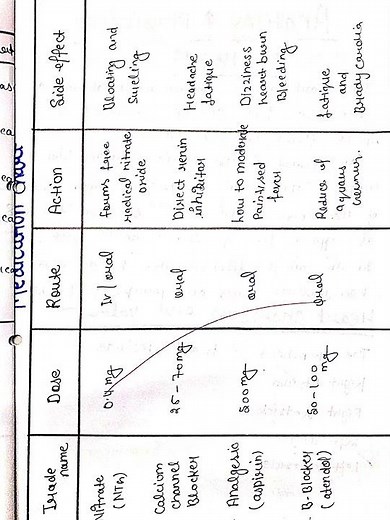 Medication Chart
Trade name
Dose
Route
Action
Side-effect
Nitrate (NTG)
0.4mg
IV / oral
forms free radical nitrate oxide
Bloating and Swelling
Calcium channel Blocker
25 - 70mg
oral
Direct renin inhibitor
Headache fatique
Analgesic (aspirin)
500mg
oral
low to moderate Pain
fever
Dizziness heart burn Bleeding
B-Blocker
50-100 mg
oral
Reduces of aqueous
fatique and Brady Cardia